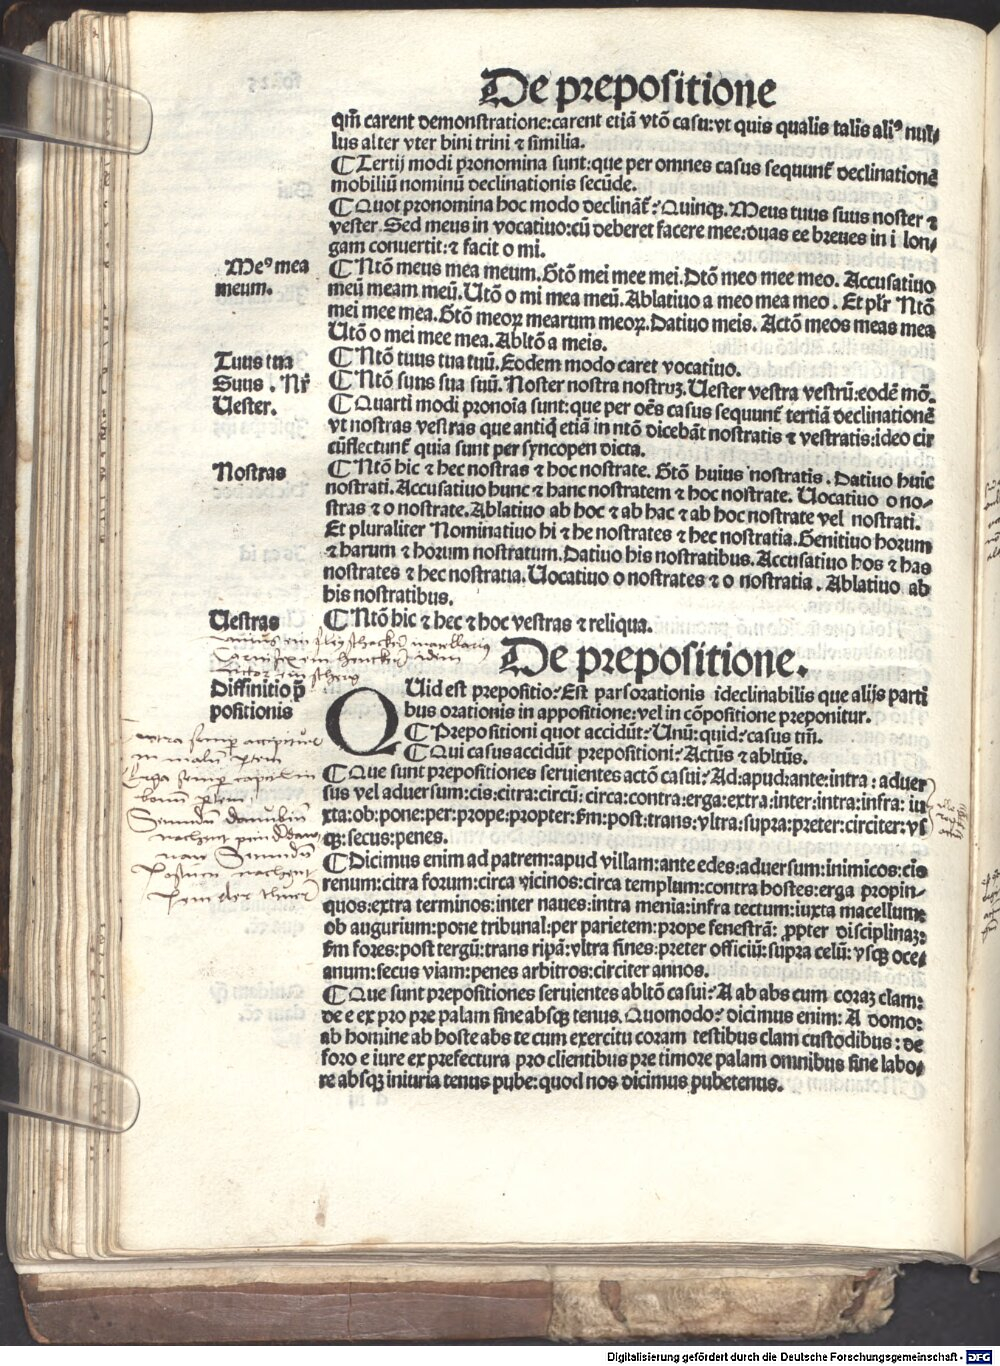 De prepositione
qm̃ carent demonstratione:carent etiã vtõ casu:vt quis qualis talis aliꝰ nul⸗
lus alter vter bini trini ⁊ similia.
¶Tertij modi pronomina sunt:que per omnes casus sequunt̃ declinationẽ
mobiliũ nominũ declinationis secũde.
¶Quot pronomina hoc modo declinãt̃?Quinqꝫ.Meus tuus suus noster ⁊
vester.Sed meus in vocatiuo:cũ deberet facere mee:duas ee breues in i lon⸗
gam conuertit:⁊ facit o mi.
Meꝰ mea
meum.
¶Ntõ meus mea meum.Gtõ mei mee mei.Dtõ meo mee meo. Accusatiuo
meũ meam meũ.Utõ o mi mea meũ.Ablatiuo a meo mea meo. Et plr̃ Ntõ
mei mee mea.Gtõ meoꝝ mearum meoꝝ.Datiuo meis. Actõ meos meas mea
Utõ o mei mee mea.Abltõ a meis.
Tuus tua
¶Ntõ tuus tua tuũ.Eodem modo caret vocatiuo.
Suus . Nr̃
Uester.
¶Ntõ suus sua suũ.Noster nostra nostruꝫ.Uester vestra vestrũ:eodẽ mõ.
¶Quarti modi pronoĩa sunt:que per oẽs casus sequunt̃ tertiã declinationẽ
vt nostras vestras que antiq̃ etiã in ntõ dicebãt nostratis ⁊ vestratis:ideo cir
cũflectunt̃ quia sunt per syncopen dicta.
Nostras
¶Ntõ hic ⁊ hec nostras ⁊ hoc nostrate. Gtõ huius nostratis. Datiuo huic
nostrati.Accusatiuo hunc ⁊ hanc nostratem ⁊ hoc nostrate. Uocatiuo o no⸗
stras ⁊ o nostrate.Ablatiuo ab hoc ⁊ ab hac ⁊ ab hoc nostrate vel nostrati.
Et pluraliter Nominatiuo hi ⁊ he nostrates ⁊ hec nostratia.Genitiuo horum
⁊ harum ⁊ horum nostratum.Datiuo his nostratibus.Accusatiuo hos ⁊ has
nostrates ⁊ hec nostratia.Uocatiuo o nostrates ⁊ o nostratia . Ablatiuo ab
his nostratibus.
Uestras
¶Ntõ hic ⁊ hec ⁊ hoc vestras ⁊ reliqua.
De prepositione.
Diffinitio p̃
positionis
QUid est prepositio?Est pars orationis ideclinabilis que alijs parti
bus orationis in appositione:vel in cõpositione preponitur.
¶Prepositioni quot accidũt?Unũ:quid?casus tm̃.
¶Qui casus accidũt prepositioni?Actũs ⁊ abltũs.
¶Que sunt prepositiones seruientes actõ casui?Ad:apud:ante:intra:aduer
sus vel aduersum:cis:citra:circũ:circa:contra:erga:extra:inter:intra:infra: iu
xta:ob:pone:per:prope:propter:ẜm:post:trans:vltra:supra:preter:circiter:vs
qꝫ:secus:penes.
¶Dicimus enim ad patrem:apud villam:ante edes:aduersum:inimicos:cis
renum:citra forum:circa vicinos:circa templum:contra hostes:erga propin⸗
quos:extra terminos:inter naues:intra menia:infra tectum:iuxta macellum:
ob augurium:pone tribunal:per parietem:prope fenestrã: ꝓpter disciplinaꝫ:
ẜm fores:post tergũ:trans ripã:vltra fines:preter officiũ:supra celũ:vsqꝫ oce⸗
anum:secus viam:penes arbitros:circiter annos.
¶Que sunt prepositiones seruientes abltõ casui?A ab abs cum coraꝫ clam:
de e ex pro pre palam sine absqꝫ tenus. Quomodo? dicimus enim: A domo:
ab homine ab hoste abs te cum exercitu coram testibus clam custodibus: de
foro e iure ex prefectura pro clientibus pre timore palam omnibus sine labo⸗
re absqꝫ iniuria tenus pube:quod nos dicimus pubetenus.
Digitalisierung gefördert durch die Deutsche Forschungsgemeinschaft - DFG